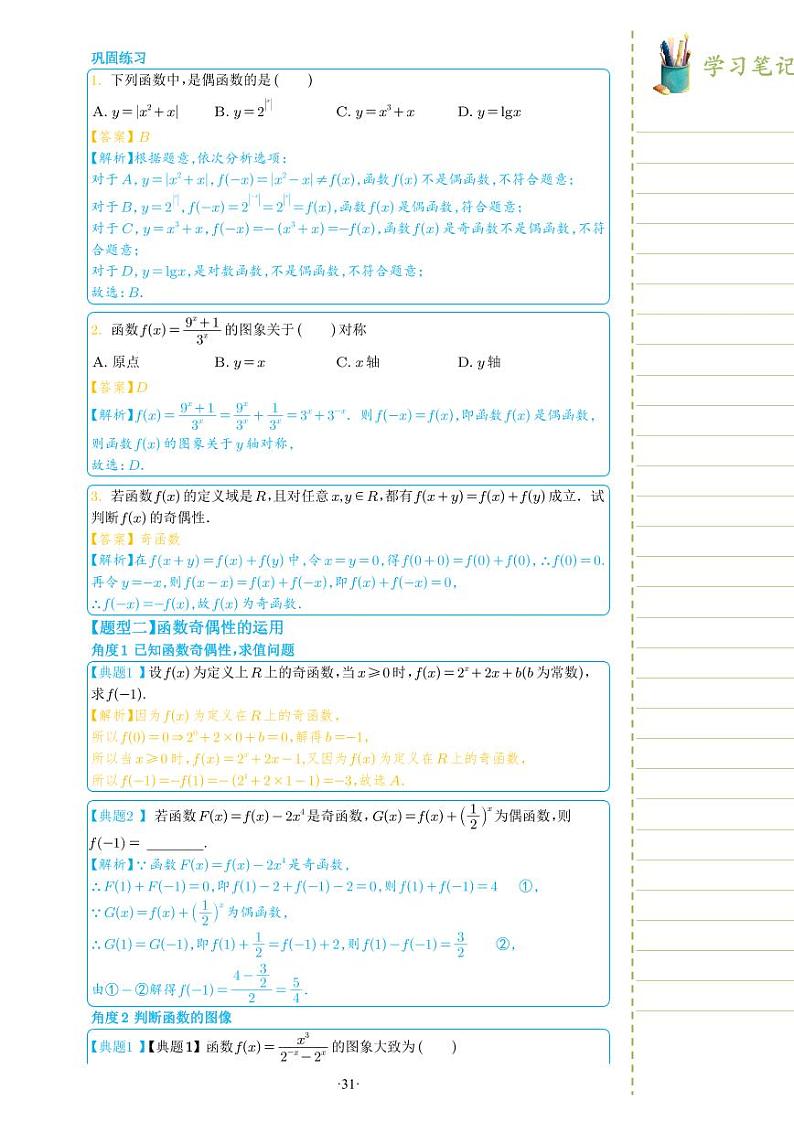 巩固练习
1. 下列函数中,是偶函数的是 (  )
A. y=|x²+x|  B. y=2^|x|  C. y=x³+x  D. y=lgx
【答案】B
【解析】根据题意,依次分析选项:
对于A, y=|x²+x|, f(-x)=|x²-x|≠f(x),函数f(x)不是偶函数,不符合题意;
对于B, y=2^|x|, f(-x)=2^|-x|=2^|x|=f(x),函数f(x)是偶函数,符合题意;
对于C, y=x³+x, f(-x)=-(x³+x)=-f(x),函数f(x)是奇函数不是偶函数,不符
合题意;
对于D, y=lgx,是对数函数,不是偶函数,不符合题意;
故选:B.
2. 函数f(x)=(9ˣ+1)/3ˣ 的图象关于 (  ) 对称
A. 原点  B. y=x  C. x轴  D. y轴
【答案】D
【解析】f(x)=(9ˣ+1)/3ˣ=9ˣ/3ˣ+1/3ˣ=3ˣ+3⁻ˣ. 则f(-x)=f(x),即函数f(x)是偶函数,
则函数f(x)的图象关于y轴对称,
故选:D.
3. 若函数f(x)的定义域是R,且对任意x,y∈R,都有f(x+y)=f(x)+f(y)成立. 试
判断f(x)的奇偶性.
【答案】奇函数
【解析】在f(x+y)=f(x)+f(y)中,令x=y=0,得f(0+0)=f(0)+f(0),∴f(0)=0.
再令y=-x,则f(x-x)=f(x)+f(-x),即f(x)+f(-x)=0,
∴f(-x)=-f(x),故f(x)为奇函数.
【题型二】函数奇偶性的运用
角度1 已知函数奇偶性,求值问题
【典题1 】设f(x)为定义上R上的奇函数,当x≥0时,f(x)=2ˣ+2x+b(b为常数),
求f(-1).
【解析】因为f(x)为定义在R上的奇函数,
所以f(0)=0⇒2⁰+2×0+b=0,解得b=-1,
所以当x≥0时,f(x)=2ˣ+2x-1,又因为f(x)为定义在R上的奇函数,
所以f(-1)=-f(1)=-(2¹+2×1-1)=-3,故选A.
【典题2 】 若函数F(x)=f(x)-2x⁴是奇函数,G(x)=f(x)+(1/2)ˣ为偶函数,则
f(-1)= ________.
【解析】∵函数F(x)=f(x)-2x⁴是奇函数,
∴F(1)+F(-1)=0,即f(1)-2+f(-1)-2=0,则f(1)+f(-1)=4 ①,
∵G(x)=f(x)+(1/2)ˣ为偶函数,
∴G(1)=G(-1),即f(1)+1/2=f(-1)+2,则f(1)-f(-1)=3/2 ②,
由①-②解得f(-1)=(4-3/2)/2=5/4.
角度2 判断函数的图像
【典题1 】【典题1】函数f(x)=x³/(2⁻ˣ-2ˣ) 的图象大致为 (  )
·31·
学习笔记